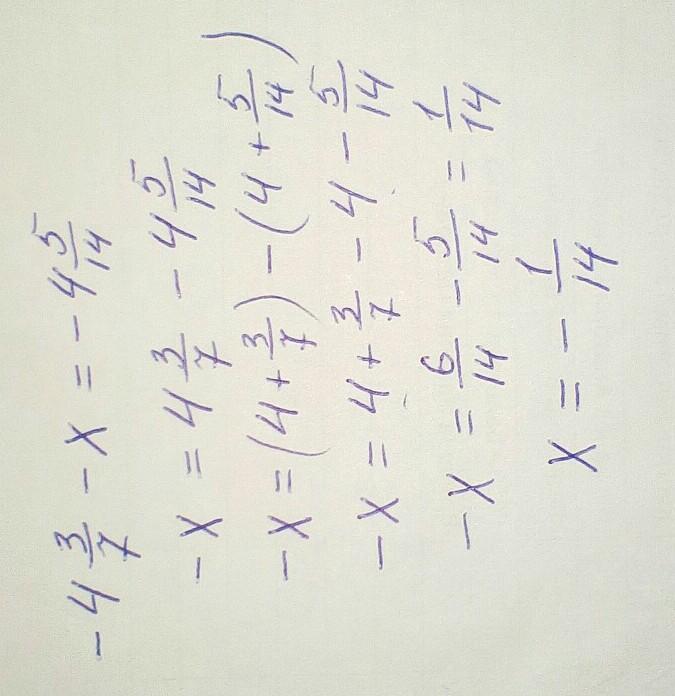 -4 3/7 - x = -4 5/14
-x = 4 3/7 - 4 5/14
-x = (4 + 3/7) - (4 + 5/14)
-x = 4 + 3/7 - 4 - 5/14
-x = 6/14 - 5/14 = 1/14
x = - 1/14